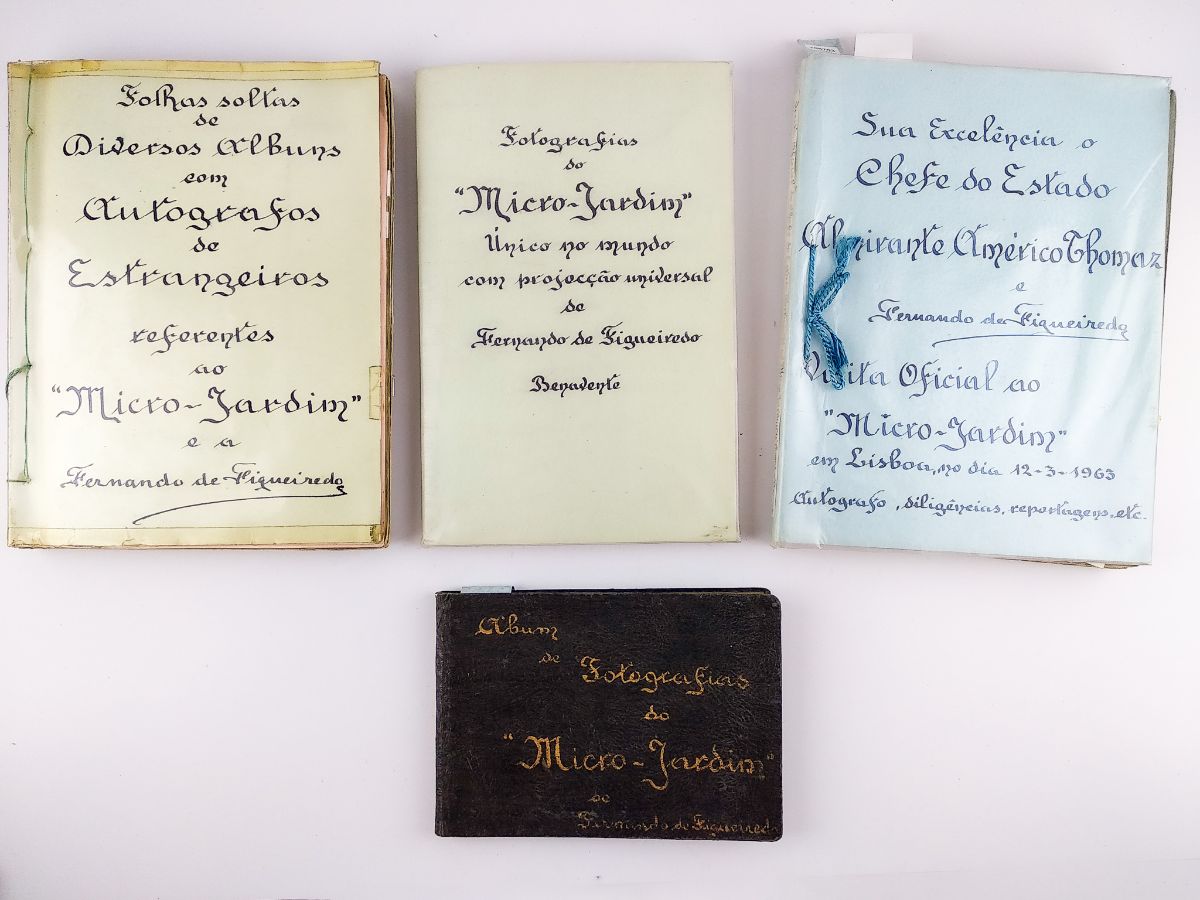 Folhas soltas
de
Diversos Albuns
com
Autografos
de
Estrangeiros
referentes
ao
"Micro-Jardim"
e a
Fernando de Figueiredo
Fotografias
do
"Micro-Jardim"
Único no mundo
com projecção universal
de
Fernando de Figueiredo
Benavente
Sua Excelência o
Chefe do Estado
Almirante Américo Thomaz
e
Fernando de Figueiredo
Visita Oficial ao
"Micro-Jardim"
em Lisboa, no dia 12-3-1963
Autografo, diligências, reportagens, etc.
Album
de
Fotografias
do
"Micro-Jardim"
de
Fernando de Figueiredo